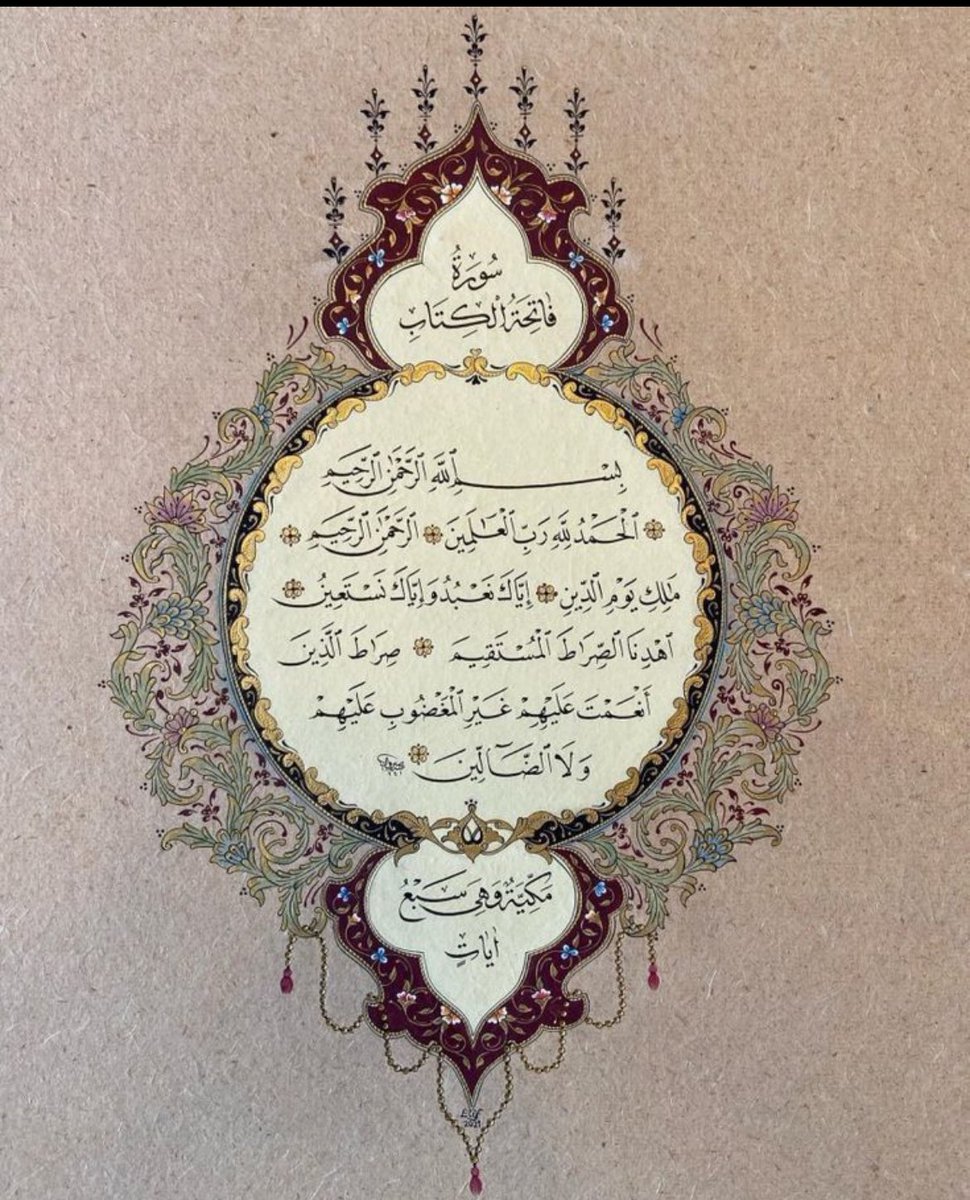 سُورَةُ
فَاتِحَةُ ٱلْكِتَابِ
بِسْمِ ٱللَّهِ ٱلرَّحْمٰنِ ٱلرَّحِيمِ
ٱلْحَمْدُ لِلَّهِ رَبِّ ٱلْعَالَمِينَ ٱلرَّحْمٰنِ ٱلرَّحِيمِ
مَٰلِكِ يَوْمِ ٱلدِّينِ إِيَّاكَ نَعْبُدُ وَإِيَّاكَ نَسْتَعِينُ
ٱهْدِنَا ٱلصِّرَاطَ ٱلْمُسْتَقِيمَ صِرَاطَ ٱلَّذِينَ
أَنْعَمْتَ عَلَيْهِمْ غَيْرِ ٱلْمَغْضُوبِ عَلَيْهِمْ
وَلَا ٱلضَّآلِّينَ
مَكِّيَّةٌ وَهِيَ سَبْعُ
اٰيَاتٍ
Elif
2021